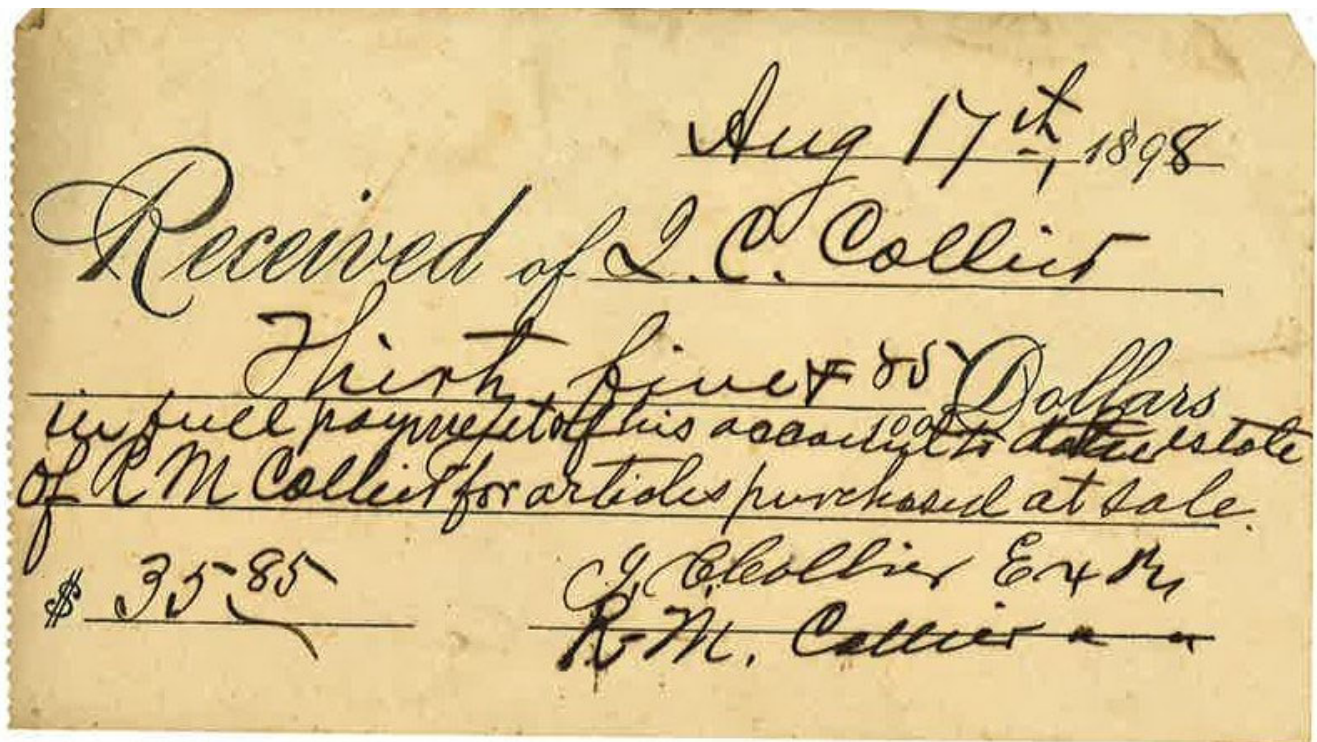 Aug 17th, 1898
Received of J. C. Collier
Thirty five & 85/100 Dollars
in full payment of his account to estate
of R M Collier for articles purchased at sale.
$ 35 85 J C Collier Ex
R. M. Collier